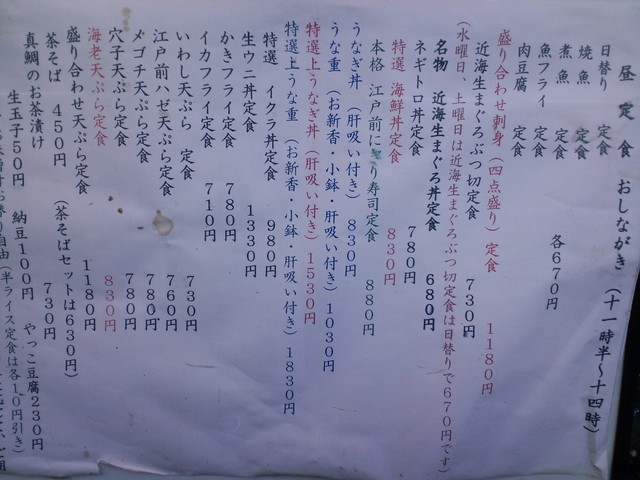 昼定食 おしながき (十一時半〜十四時)
日替り 定食
焼魚 定食
煮魚 定食
魚フライ 定食
肉豆腐 定食
各670円
盛り合わせ刺身 (四点盛り) 定食 1180円
近海生まぐろぶつ切定食 730円
(水曜日、土曜日は近海生まぐろぶつ切定食は日替りで670円です)
名物 近海生まぐろ丼定食 680円
ネギトロ丼定食 780円
特選 海鮮丼定食 830円
本格 江戸前にぎり寿司定食 880円
うなぎ丼 (肝吸い付き) 830円
うな重 (お新香・小鉢・肝吸い付き) 1030円
特選上うなぎ丼 (肝吸い付き) 1530円
特選上うな重 (お新香・小鉢・肝吸い付き) 1830円
特選 イクラ丼定食 980円
生ウニ丼定食 1330円
かきフライ定食 780円
イカフライ定食 710円
いわし天ぷら 定食 730円
江戸前ハゼ天ぷら定食 760円
メゴチ天ぷら定食 780円
穴子天ぷら定食 780円
海老天ぷら定食 830円
盛り合わせ天ぷら定食 1180円
茶そば 450円 (茶そばセットは630円)
真鯛のお茶漬け 730円
生玉子50円 納豆100円 やっこ豆腐230円
自由 (半ライス定食は各10円引き)